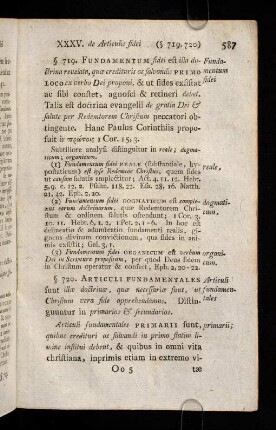 XXXV. de Articulis fidei (§ 719. 720) 587
§ 719. FUNDAMENTUM fidei est illa do- Funda-
ctrina revelata, quæ credituris ac salvandis PRIMO mentum
LOCO ex verbo Dei proponi, & ut fides existat fidei
ac sibi constet, agnosci & retineri debet.
Talis est doctrina evangelii de gratia Dei &
salute per Redemtorem Christum peccatori ob-
tingente. Hanc Paulus Corinthiis propo-
suit ἐν πρώτοις 1 Cor. 15, 3.
Subtiliore analysi distinguitur in reale; dogma-
ticum; organicum.
(1) Fundamentum fidei REALE (substantiale, hy- reale,
postaticum) est ipse Redemtor Christus, quem fides
ut causam salutis amplectitur; Act. 4, 11. 12. Hebr.
5, 9. c. 12, 2. Psalm. 118, 22. Esa. 28, 16. Matth.
21, 42. Eph. 2, 20.
(2) Fundamentum fidei DOGMATICUM est comple- dogmati-
xus earum doctrinarum, quæ Redemtorem Christum cum,
& ordinem salutis ostendunt; 1 Cor. 3,
10. 11. Hebr. 6, 1. 2.
& elementum fundamenti realis, gi-
gnens divinam convictionem, qua fides in ani-
mis existit; Gal. 3, 1.
(3) Fundamentum fidei ORGANICUM est verbum organi-
Dei in Scriptura propositum, per quod Deus fidem cum.
in Christum operatur & confert, Eph. 2, 20-22.
§ 720. ARTICULI FUNDAMENTALES Articuli
sunt illæ doctrinæ, quæ necessariæ sunt, ut fundamen-
Christum vera fide apprehendamus. Distin- tales
guuntur in primarios & secundarios.
Articuli fundamentales PRIMARII sunt, primarii;
quibus credituri ac salvandi in primo statim li-
mine institui debent, & quibus in omni vita
christiana, inprimis etiam in extremo vi-
Oo 5 tæ